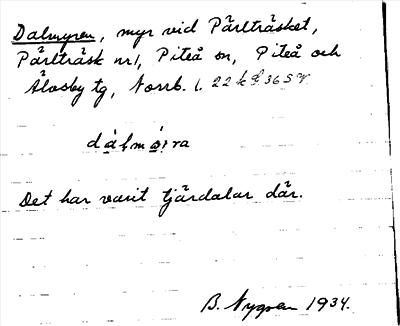 Dalmyren, myr vid Pärlträsket,
Pärlträsk nr 1, Piteå sn, Piteå och
Älvsby tg, Norrb. l. 22 k
dálmỳra
Det har varit tjärdalar där.
B. Nygren 1934.